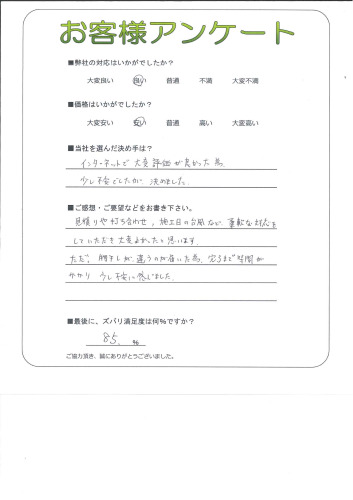 お客様アンケート
■弊社の対応はいかがでしたか?
大変良い 良い 普通 不満 大変不満
■価格はいかがでしたか?
大変安い 安い 普通 高い 大変高い
■当社を選んだ決め手は?
インターネットで大変評価が良かった為、
少し不安でしたが、決めました。
■ご感想・ご要望などをお書き下さい。
見積りや打ち合わせ、施工日の台風など、柔軟な対応を
していただき大変よかったと思います。
ただ、雨戸しが違うのが届いた為、完了まで時間が
かかり 少し不安に感じました。
■最後に、ズバリ満足度は何%ですか?
85. %
ご協力頂き、誠にありがとうございました。